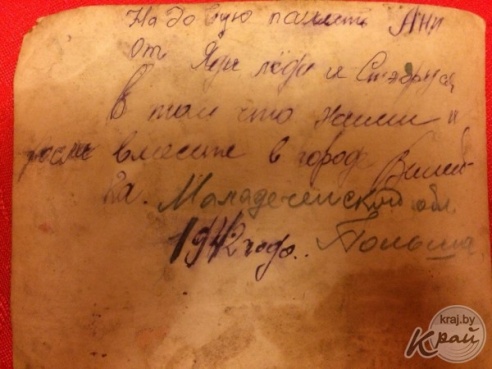 На довую памить Ани
От Яры лода и
В том что жили и
росли вместе в город Вилей
ка. Маладеченской обл.
1942 года.. Польша
kraj.by
Край